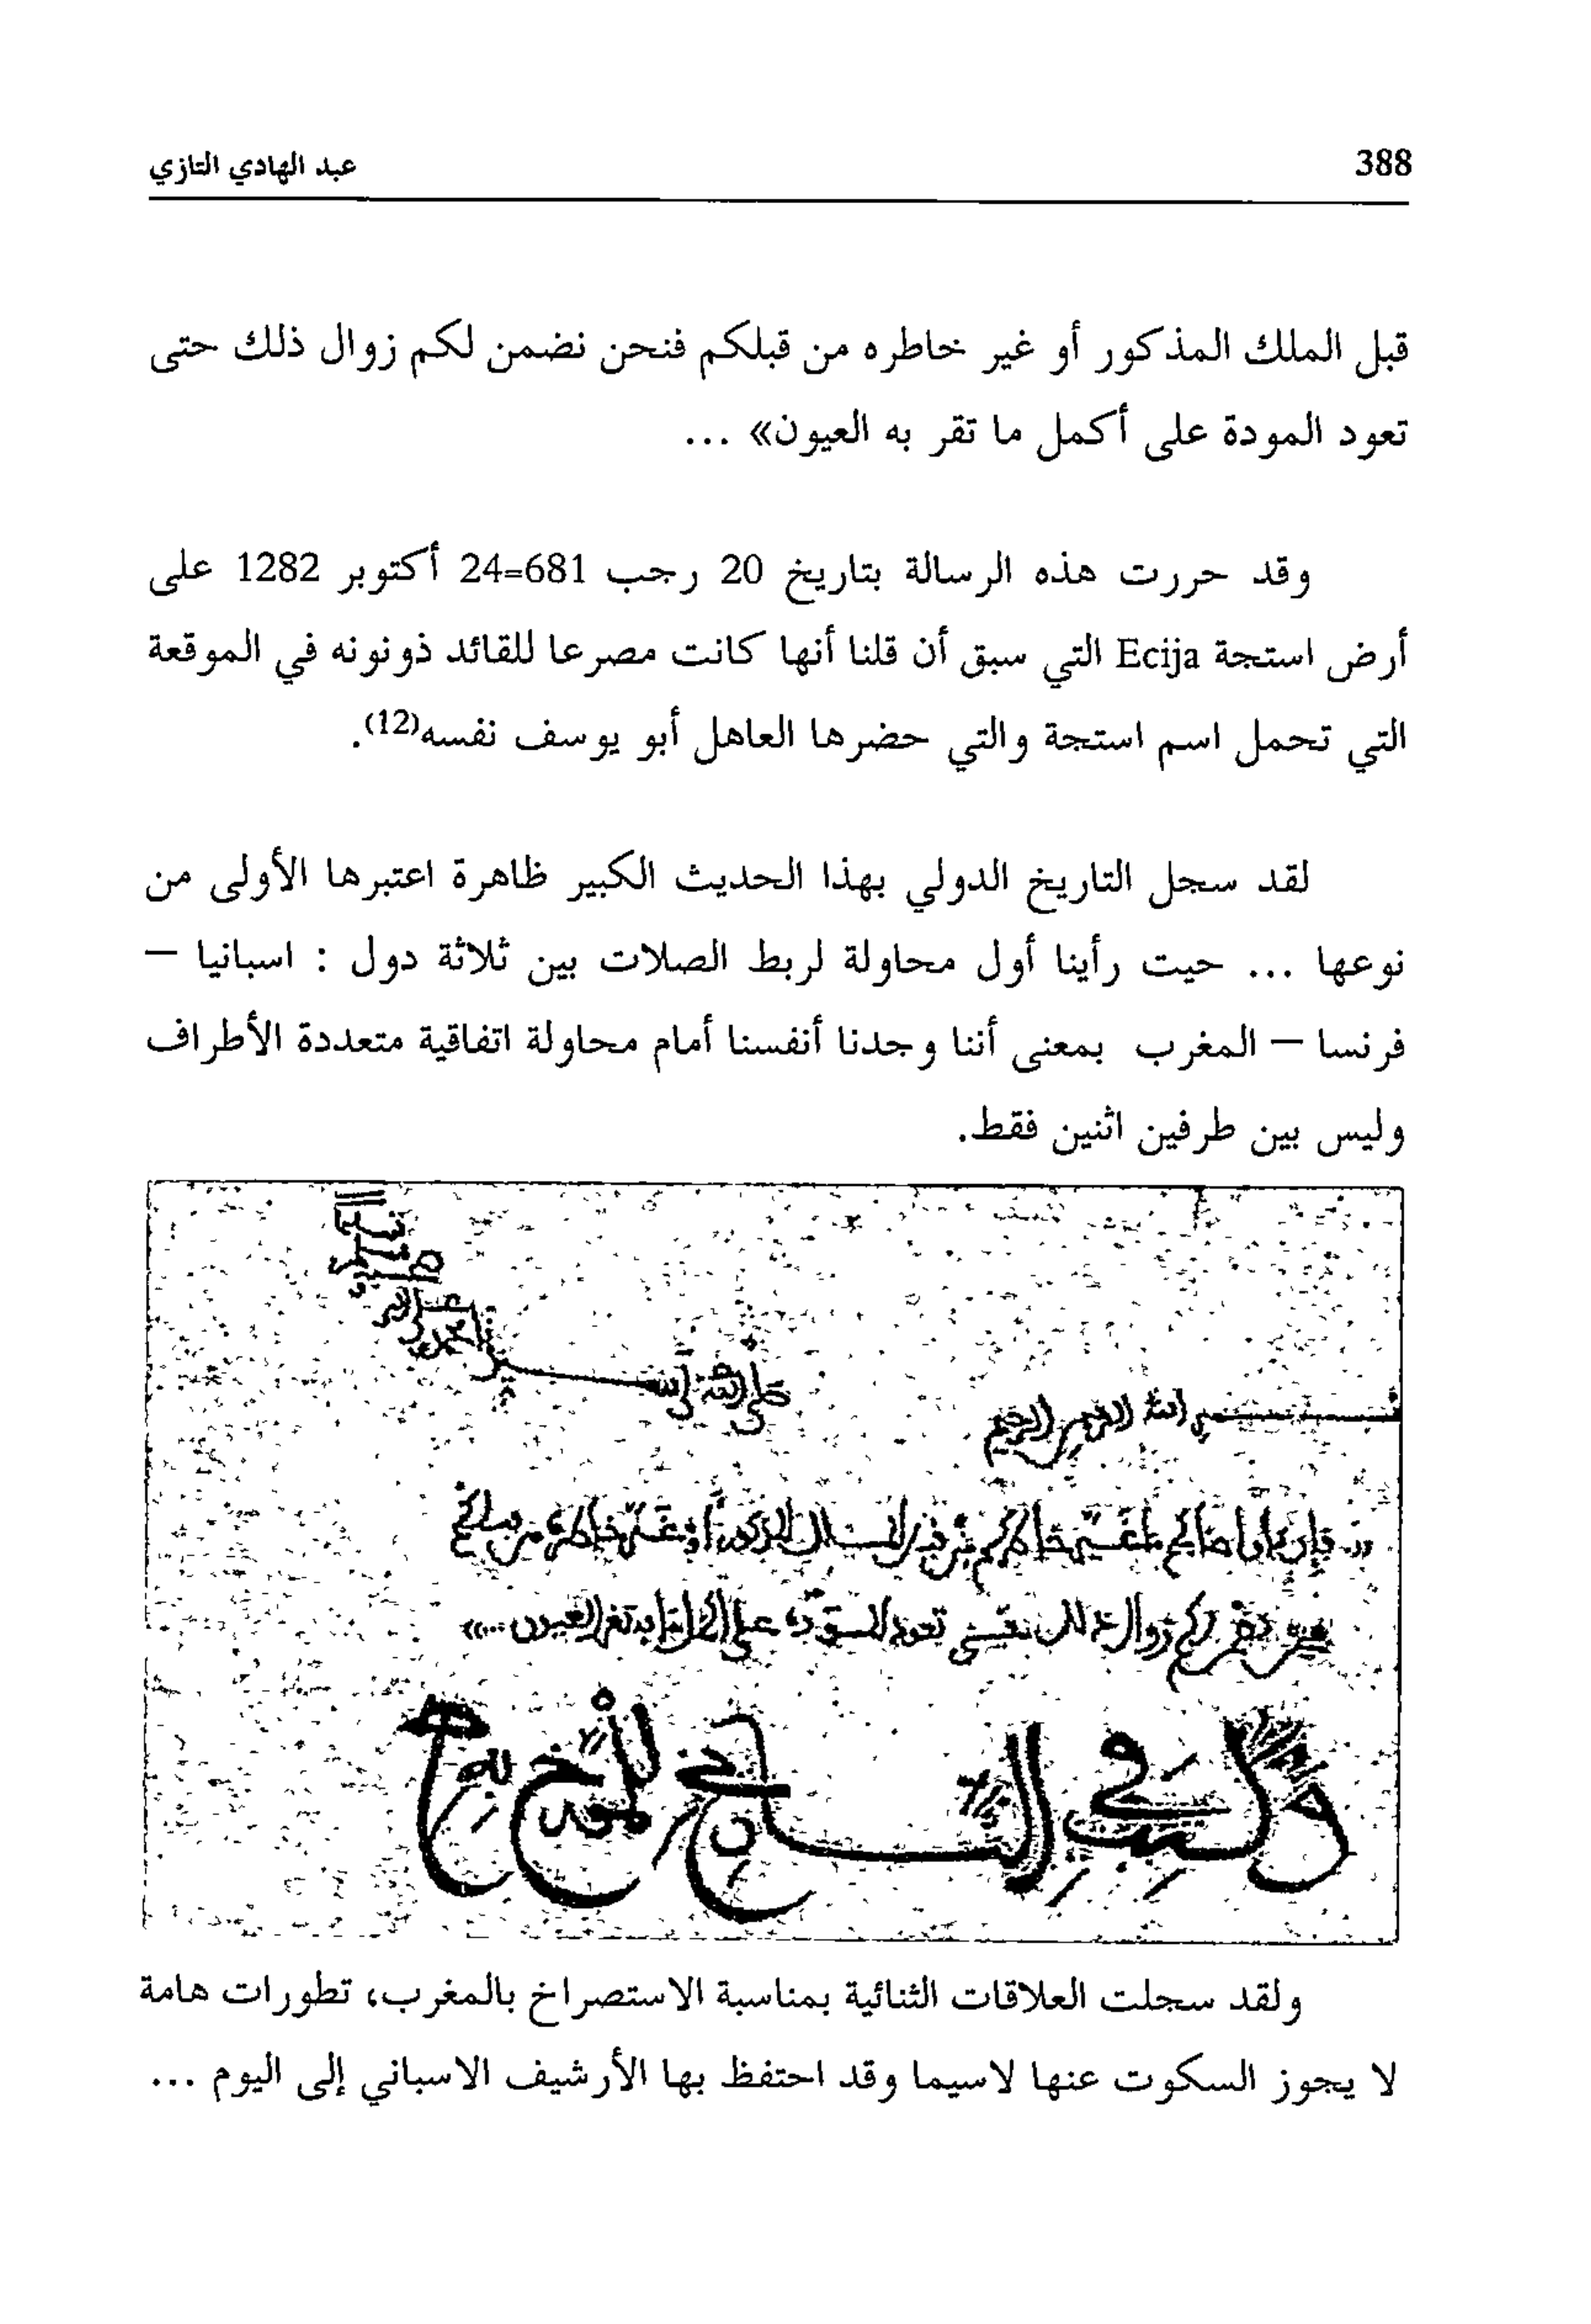 388
عبد الهادي التازي
قبل الملك المذكور أو غير خاطره من قبلكم فنحن نضمن لكم زوال ذلك حتى
تعود المودة على أكمل ما تقر به العيون» ...
وقد حررت هذه الرسالة بتاريخ 20 رجب 681=24 أكتوبر 1282 على
أرض استجة Ecija التي سبق أن قلنا أنها كانت مصرعا للقائد ذونونه في الموقعة
التي تحمل اسم استجة والتي حضرها العاهل أبو يوسف نفسه(12).
لقد سجل التاريخ الدولي بهذا الحديث الكبير ظاهرة اعتبرها الأولى من
نوعها ... حيت رأينا أول محاولة لربط الصلات بين ثلاثة دول : اسبانيا –
فرنسا – المغرب بمعنى أننا وجدنا أنفسنا أمام محاولة اتفاقية متعددة الأطراف
وليس بين طرفين اثنين فقط.
صلى الله على
بسم الله الرحمن الرحيم
خاطركم من قبل الملك المذكور أو غير خاطره من قبلكم
زوال ذلك حتى تعود المودة على أكمل ما تقر به العيون...»
وكتب في التاريخ المؤرخ به
ولقد سجلت العلاقات الثنائية بمناسبة الاستصراخ بالمغرب، تطورات هامة
لا يجوز السكوت عنها لاسيما وقد احتفظ بها الأرشيف الاسباني إلى اليوم ...